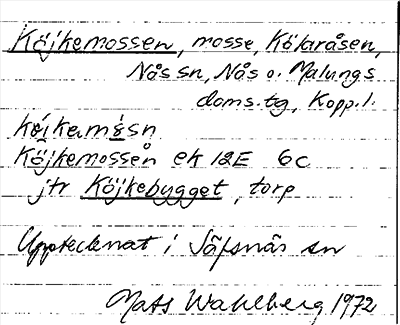 Köjkemossen, mosse, Kölaråsen,
Nås sn, Nås o. Malungs
doms.tg, Kopp.l.
köi̯kam̀ɛsn
Köjkemossen ek 12E 6c
jfr Köjkebygget, torp
Upptecknat i Säfsnäs sn
Mats Wahlberg 1972